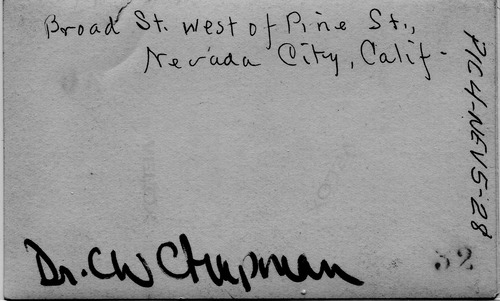 Broad St. west of Pine St.,
Nevada City, Calif.
PIC4-NEV5-28
Dr. CW Chapman
32